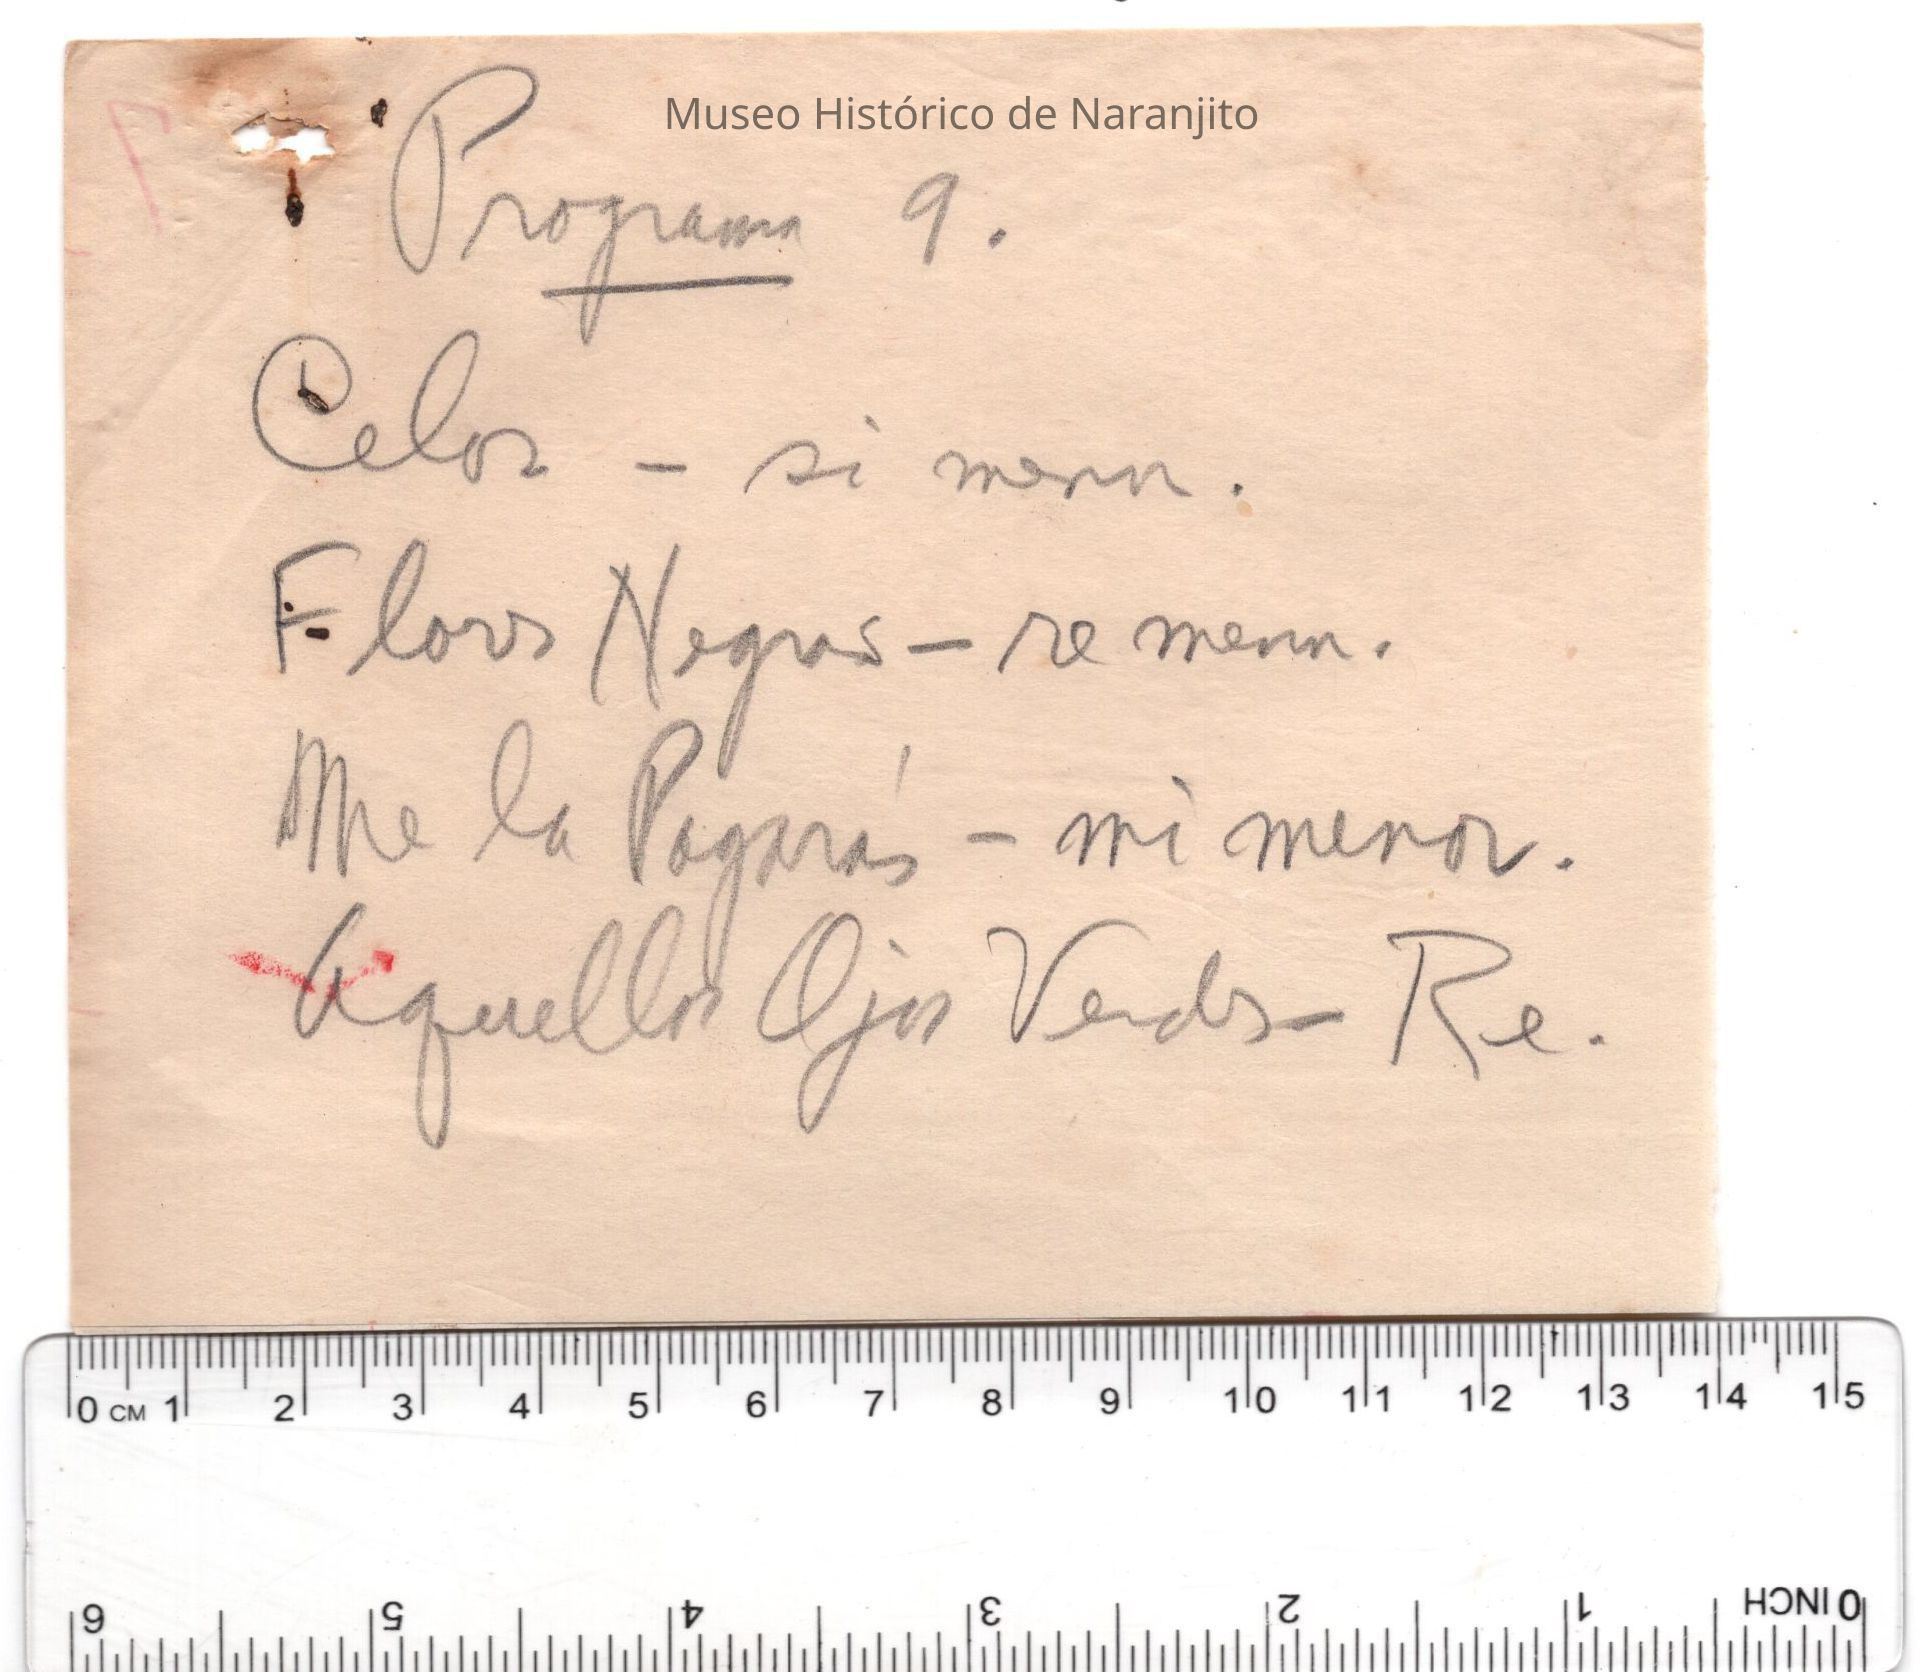 Museo Histórico de Naranjito
Programa 9.
Celos - si menor.
Flores Negras - re menor.
Me la Pagarás - mi menor.
Aquellos Ojos Verdes - Re.
0 CM 1 2 3 4 5 6 7 8 9 10 11 12 13 14 15
6 5 4 3 2 1 0 INCH